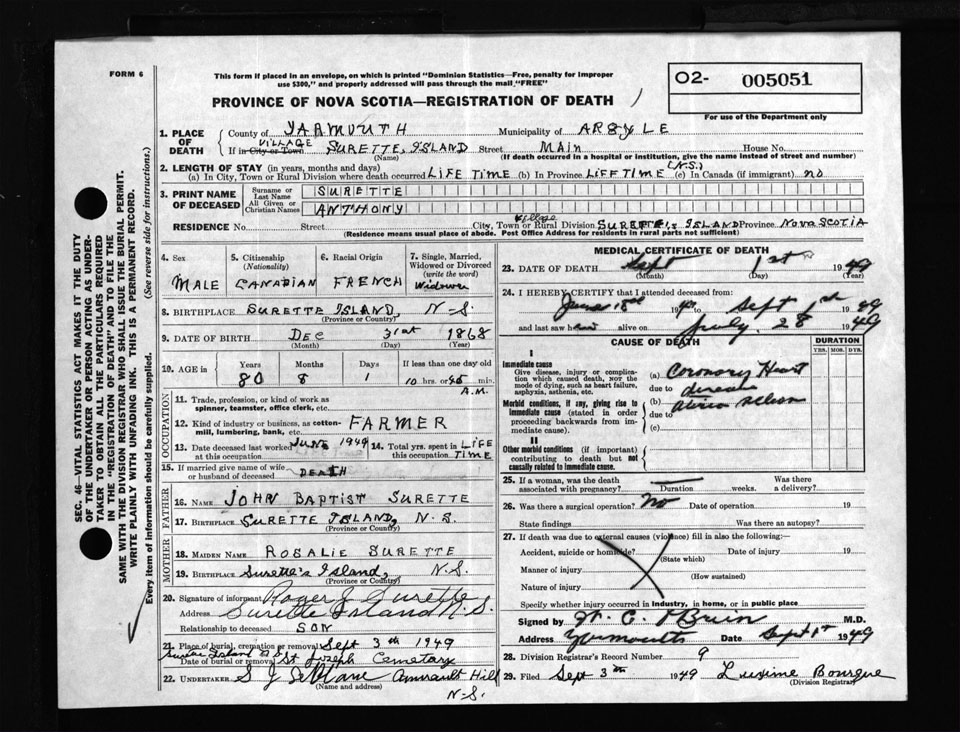 FORM 6
This form if placed in an envelope, on which is printed "Dominion Statistics—Free, penalty for improper
use $300," and properly addressed will pass through the mail "FREE"
PROVINCE OF NOVA SCOTIA—REGISTRATION OF DEATH
O2- 005051
For use of the Department only
1. PLACE OF DEATH
County of YARMOUTH Municipality of ARGYLE
VILLAGE
If in City or Town SURETTE, ISLAND Street MAIN House No.
(Name) (If death occurred in a hospital or institution, give the name instead of street and number)
2. LENGTH OF STAY (in years, months and days) (N.S.)
(a) In City, Town or Rural Division where death occurred LIFE TIME (b) In Province LIFE TIME (c) In Canada (if immigrant) no
3. PRINT NAME OF DECEASED
Surname or Last Name SURETTE
All Given or Christian Names ANTHONY
Village
RESIDENCE No. Street City, Town or Rural Division SURETTE'S ISLAND Province NOVA SCOTIA
(Residence means usual place of abode. Post Office Address for residents in rural parts not sufficient)
4. Sex
MALE
5. Citizenship (Nationality)
CANADIAN
6. Racial Origin
FRENCH
7. Single, Married, Widowed or Divorced (write the word)
Widower
8. BIRTHPLACE SURETTE ISLAND, N-S.
(Province or Country)
9. DATE OF BIRTH DEC 31st 1868
(Month) (Day) (Year)
10. AGE in Years Months Days If less than one day old
80 8 1 10 hrs. or 45 min.
A.M.
OCCUPATION
11. Trade, profession, or kind of work as
spinner, teamster, office clerk, etc.
12. Kind of industry or business, as cotton-
mill, lumbering, bank, etc. FARMER
13. Date deceased last worked at this occupation JUNE 1949
14. Total yrs. spent in this occupation LIFE TIME
15. If married give name of wife
or husband of deceased DEATH
FATHER
16. NAME JOHN BAPTIST SURETTE
17. BIRTHPLACE SURETTE ISLAND, N.S.
(Province or Country)
MOTHER
18. MAIDEN NAME ROSALIE SURETTE
19. BIRTHPLACE Surette's Island, N.S.
(Province or Country)
20. Signature of informant Roger J Surette
Address Surette Island N.S.
Relationship to deceased SON
21. Place of burial, cremation or removal Sept 3th 1949
Surette Island N.S.
Date of burial or removal St Joseph Cemetary
22. UNDERTAKER S J LeBlanc Amirault Hill
(Name and address)
N-S.
MEDICAL CERTIFICATE OF DEATH
23. DATE OF DEATH Sept 1st 1949
(Month) (Day) (Year)
24. I HEREBY CERTIFY that I attended deceased from:
June 18th 1949 to Sept 1th 1949
and last saw him alive on July 28 1949
CAUSE OF DEATH
DURATION
YRS. MOS. DYS.
I
Immediate cause
Give disease, injury or complica-
tion which caused death, NOT the
mode of dying, such as heart failure,
asphyxia, asthenia, etc.
(a) Coronary Heart
due to disease
Morbid conditions, if any, giving rise to
immediate cause (stated in order
proceeding backwards from im-
mediate cause).
(b)
due to
(c)
II
Other morbid conditions (if important)
contributing to death but not
causally related to immediate cause.
25. If a woman, was the death
associated with pregnancy? Duration weeks. Was there
a delivery?
26. Was there a surgical operation? No Date of operation 19
State findings Was there an autopsy?
27. If death was due to external causes (violence) fill in also the following:—
Accident, suicide or homicide? Date of injury 19
(State which)
Manner of injury
(How sustained)
Nature of injury
Specify whether injury occurred in industry, in home, or in public place
Signed by W. C. O'Brien M.D.
Address Yarmouth Date Sept 1st 1949
28. Division Registrar's Record Number 9
29. Filed Sept 3th 1949 Luxime Bourque
(Division Registrar)
SEC. 46—VITAL STATISTICS ACT MAKES IT THE DUTY
OF THE UNDERTAKER OR PERSON ACTING AS UNDER-
TAKER TO OBTAIN ALL THE PARTICULARS REQUIRED
IN THE "REGISTRATION OF DEATH" AND TO FILE THE
SAME WITH THE DIVISION REGISTRAR WHO SHALL ISSUE THE BURIAL PERMIT.
WRITE PLAINLY WITH UNFADING INK. THIS IS A PERMANENT RECORD.
Every item of information should be carefully supplied. (See reverse side for instructions.)